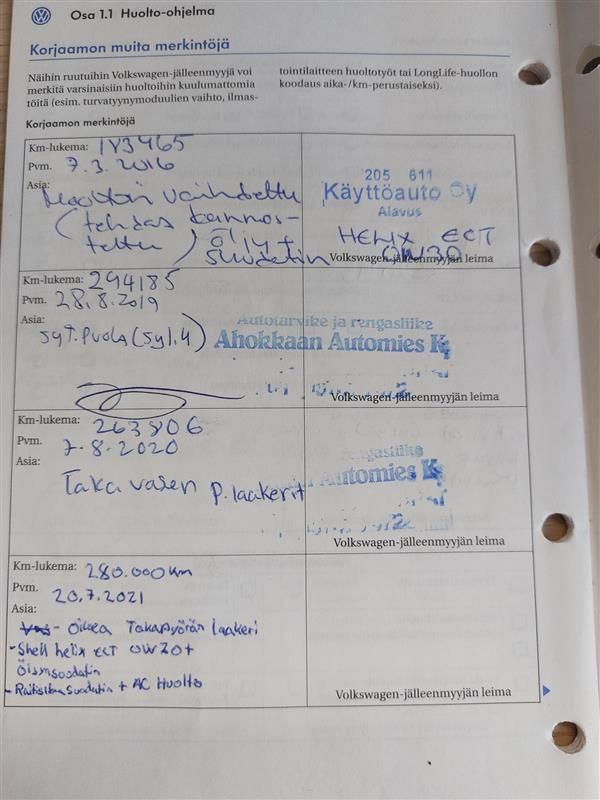 Osa 1.1 Huolto-ohjelma
Korjaamon muita merkintöjä
Näihin ruutuihin Volkswagen-jälleenmyyjä voi
merkitä varsinaisiin huoltoihin kuulumattomia
töitä (esim. turvatyynymoduulien vaihto, ilmas-
tointilaitteen huoltotyöt tai LongLife-huollon
koodaus aika-/km-perustaiseksi).
Korjaamon merkintöjä
Km-lukema: 193465
Pvm. 7.3.2016
Asia: Moottori vaihdettu
(tehdas kunnos-
tettu) öljy +
suodatin
205 611
Käyttöauto Oy
Alavus
HELIX ECT
0W30
Volkswagen-jälleenmyyjän leima
Km-lukema: 244185
Pvm. 28.8.2019
Asia:
Syt. Puola (Syl. 4)
Autotarvike ja rengasliike
Ahokkaan Automies K
Volkswagen-jälleenmyyjän leima
Km-lukema: 263806
Pvm. 7.8.2020
Asia:
Taka vasen p. laakerit
rengasliike
Automies K
Volkswagen-jälleenmyyjän leima
Km-lukema: 280.000km
Pvm. 20.7.2021
Asia:
- Oikea Takapyörän laakeri
- Shell helix ECT 0W20+
Öljynsuodatin
- Raitisilmasuodatin + AC Huolto
Volkswagen-jälleenmyyjän leima